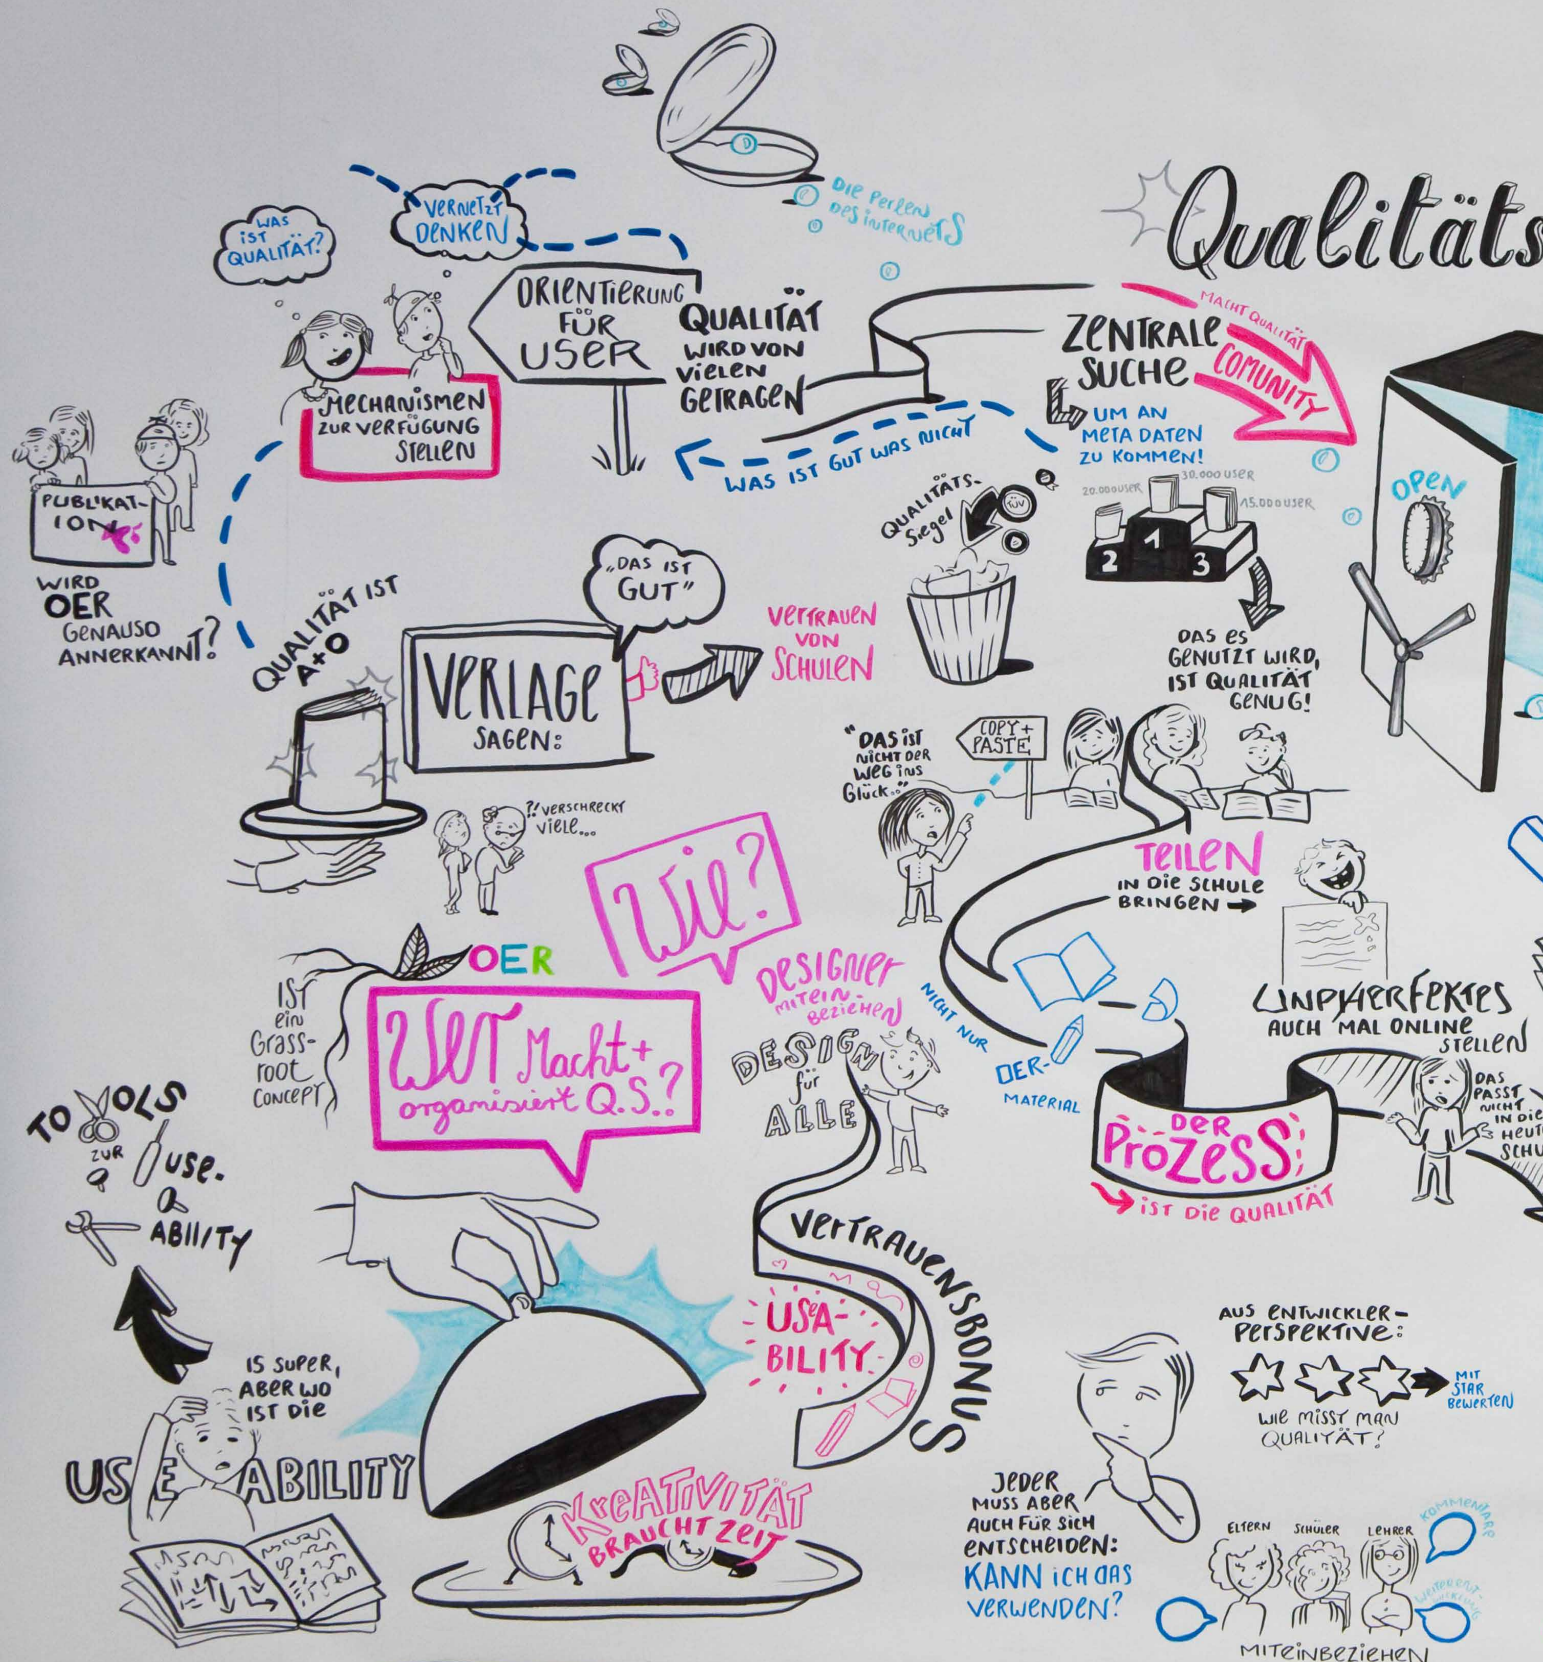 DIE PERLEN
DES INTERNETS
Qualitäts
WAS
IST
QUALITÄT?
VERNETZT
DENKEN
ORIENTIERUNG
FÜR
USER
QUALITÄT
WIRD VON
VIELEN
GETRAGEN
MECHANISMEN
ZUR VERFÜGUNG
STELLEN
WAS IST GUT WAS NICHT
ZENTRALE
SUCHE
UM AN
META DATEN
ZU KOMMEN!
MACHT QUALITÄT
COMUNITY
OPEN
PUBLIKAT-
ION
WIRD
OER
GENAUSO
ANNERKANNT?
QUALITÄTS-
Siegel
TÜV
20.000 USER
30.000 USER
15.000 USER
2
1
3
DAS ES
GENUTZT WIRD,
IST QUALITÄT
GENUG!
QUALITÄT IST
A+O
VERLAGE
SAGEN:
„DAS IST
GUT"
VERTRAUEN
VON
SCHULEN
?!
VERSCHRECKT
VIELE...
"DAS IST
NICHT DER
WEG INS
Glück.."
COPY +
PASTE
TEILEN
IN DIE SCHULE
BRINGEN
UNPHERFEKTES
AUCH MAL ONLINE
STELLEN
DAS
PASST
NICHT
IN DIE
HEUT
SCHU
Wie?
OER
IST
ein
Grass-
root
CONCEPT
Wer Macht +
organisiert Q.S.?
DESIGNER
MITEIN-
BEZIEHEN
DESIGN
für
ALLE
NICHT NUR
OER-
MATERIAL
DER
PROZESS
IST DIE QUALITÄT
TOOLS
ZUR
USE-
ABILITY
IS SUPER,
ABER WO
IST DIE
USEABILITY
VERTRAUENSBONUS
USEA-
BILITY
KREATIVITÄT
BRAUCHT ZEIT
AUS ENTWICKLER-
PERSPEKTIVE:
MIT
STAR
BEWERTEN
WIE MISST MAN
QUALITÄT?
JEDER
MUSS ABER
AUCH FÜR SICH
ENTSCHEIDEN:
KANN ICH DAS
VERWENDEN?
ELTERN
SCHÜLER
LEHRER
KOMMENTARE
WEITERENT-
WICKLUNG
MITEINBEZIEHEN